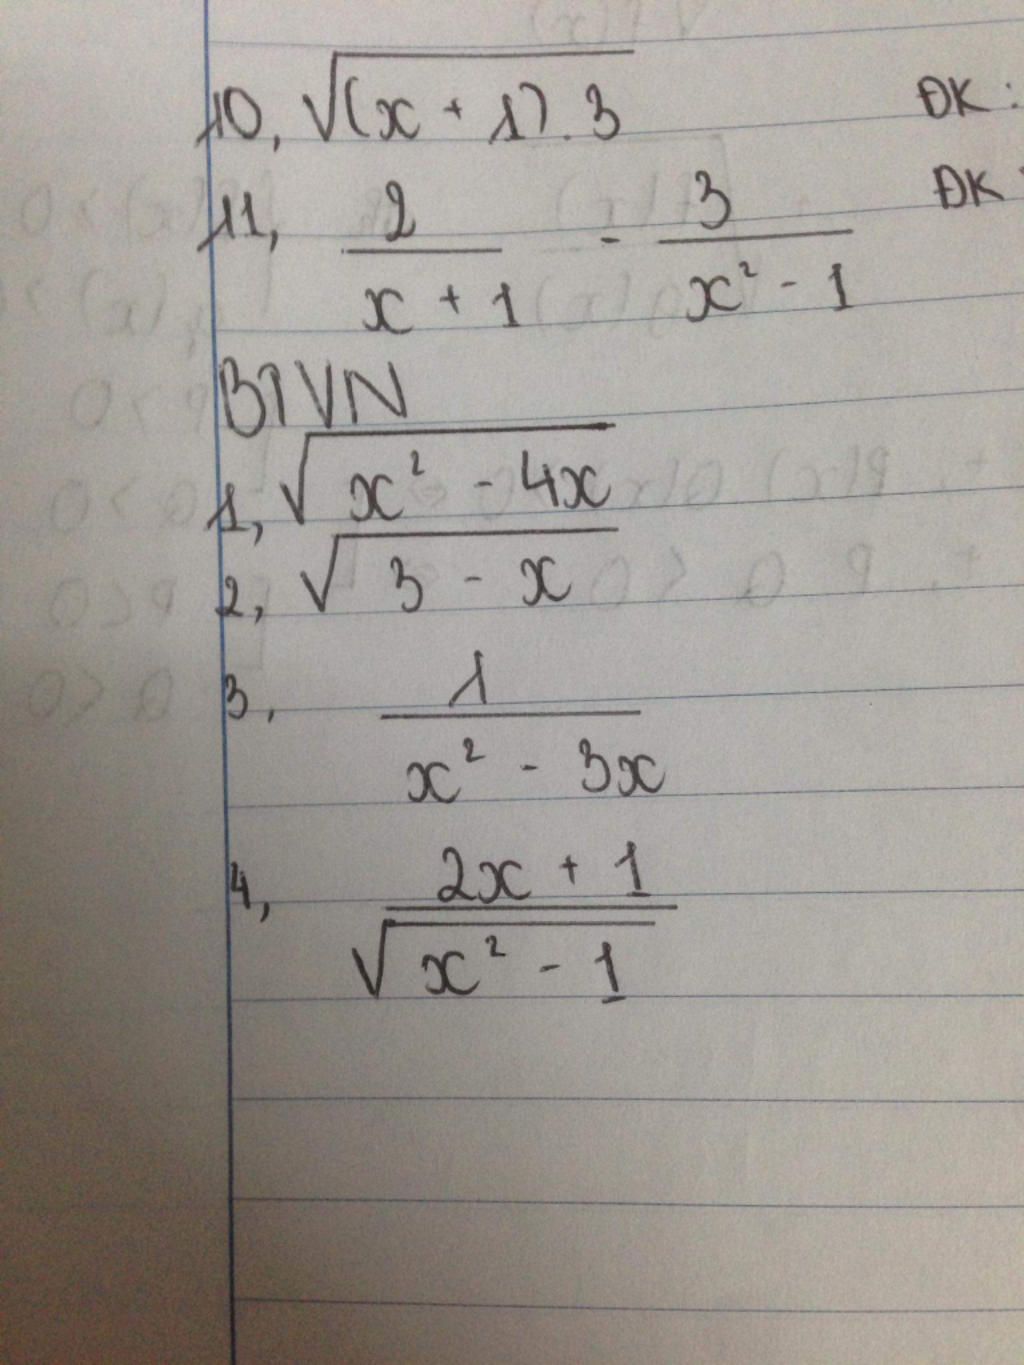 10, √((x + 1) . 3) ĐK :
11, 2/(x + 1) - 3/(x² - 1) ĐK :
BTVN
1, √(x² - 4x)
2, √(3 - x)
3, 1/(x² - 3x)
4, (2x + 1)/√(x² - 1)